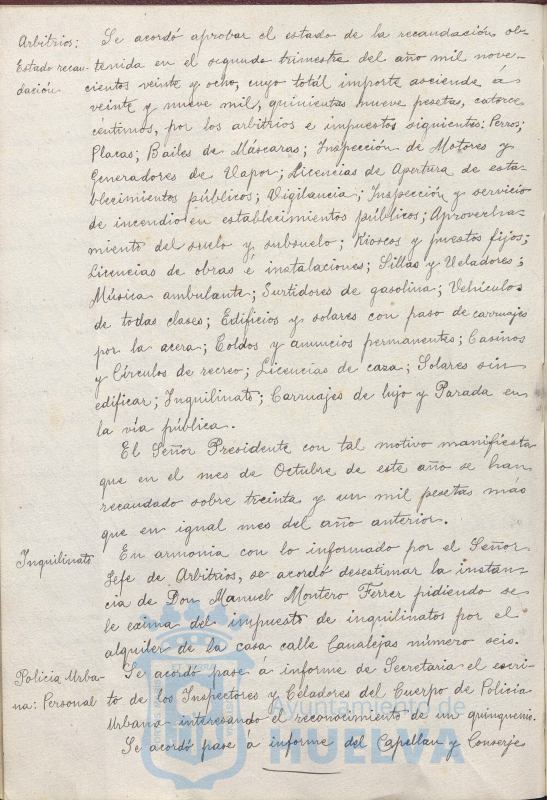 Arbitrios:
Estado recau-
dación.
Se acordó aprobar el estado de la recaudación ob-
tenida en el segundo trimestre del año mil nove-
cientos veinte y ocho, cuyo total importe asciende a
veinte y nueve mil, quinientas nueve pesetas, catorce
céntimos, por los arbitrios e impuestos siguientes: Perros;
Placas; Bailes de Máscaras; Inspección de Motores y
Generadores de Vapor; Licencias de Apertura de esta-
blecimientos públicos; Vigilancia; Inspección y servicio
de incendio en establecimientos públicos; Aprovecha-
miento del suelo y subsuelo; Kioscos y puestos fijos;
Licencias de obras é instalaciones; Sillas y Veladores;
Música ambulante; Surtidores de gasolina; Vehículos
de todas clases; Edificios y solares con paso de carruajes
por la acera; Toldos y anuncios permanentes; Casinos
y Círculos de recreo; Licencias de caza; Solares sin
edificar; Inquilinato; Carruajes de lujo y Parada en
la vía pública.
El Señor Presidente con tal motivo manifiesta
que en el mes de Octubre de este año se han
recaudado sobre treinta y un mil pesetas más
que en igual mes del año anterior.
Inquilinato
En armonia con lo informado por el Señor
Jefe de Arbitrios, se acordó desestimar la instan-
cia de Don Manuel Montero Ferrer pidiendo se
le exima del impuesto de inquilinatos por el
alquiler de la casa calle Canalejas número seis.
Policia Urba-
na: Personal
Se acordó pase á informe de Secretaria el escri-
to de los Inspectores y Celadores del Cuerpo de Policia
Urbana interesando el reconocimiento de un quinquenio.
Se acordó pase á informe del Capellan y Conserje
Ayuntamiento de
HUELVA